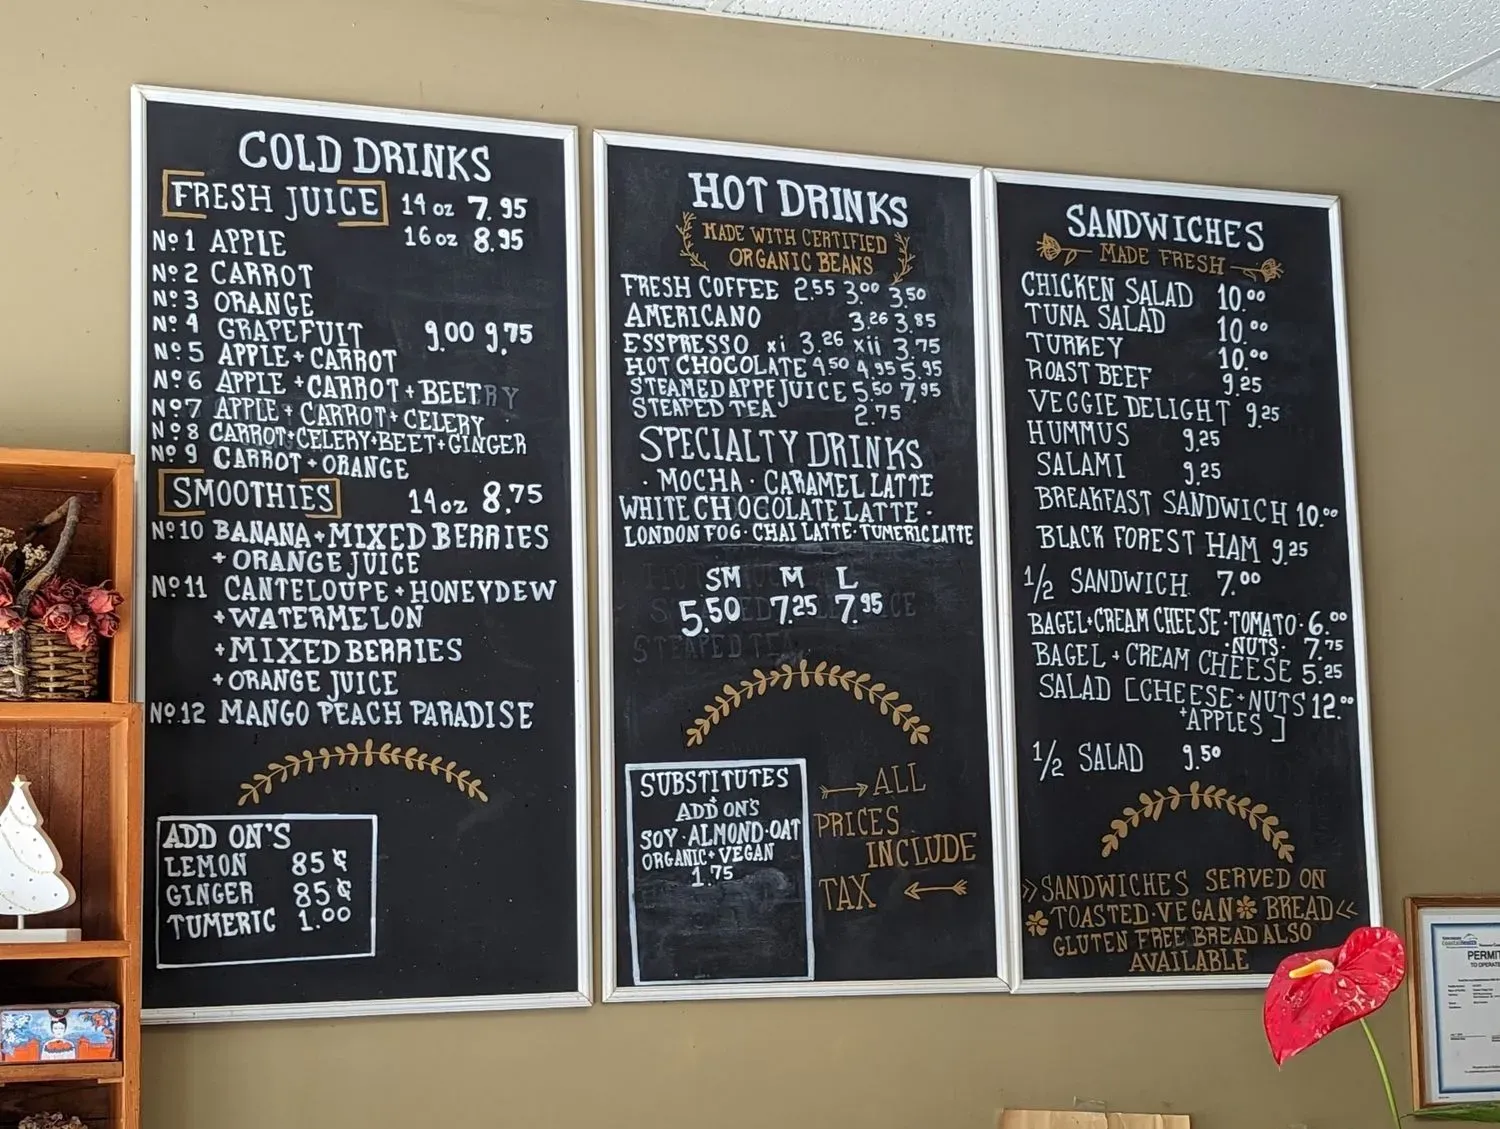 COLD DRINKS
FRESH JUICE 14 oz 7.95
16 oz 8.95
Nº1 APPLE
Nº2 CARROT
Nº3 ORANGE
Nº4 GRAPEFUIT 9.00 9.75
Nº5 APPLE + CARROT
Nº6 APPLE + CARROT + BEET
Nº7 APPLE + CARROT + CELERY
Nº8 CARROT + CELERY + BEET + GINGER
Nº9 CARROT + ORANGE
SMOOTHIES 14oz 8.75
Nº10 BANANA + MIXED BERRIES
+ ORANGE JUICE
Nº11 CANTELOUPE + HONEYDEW
+ WATERMELON
+ MIXED BERRIES
+ ORANGE JUICE
Nº.12 MANGO PEACH PARADISE
ADD ON'S
LEMON 85¢
GINGER 85¢
TUMERIC 1.00
HOT DRINKS
MADE WITH CERTIFIED
ORGANIC BEANS
FRESH COFFEE 2.55 3.00 3.50
AMERICANO 3.26 3.85
ESSPRESSO xi 3.26 xii 3.75
HOT CHOCOLATE 4.50 4.95 5.95
STEAMED APPE JUICE 5.50 7.95
STEAPED TEA 2.75
SPECIALTY DRINKS
· MOCHA · CARAMEL LATTE
WHITE CHOCOLATE LATTE ·
LONDON FOG · CHAI LATTE · TUMERIC LATTE
SM M L
5.50 7.25 7.95
SUBSTITUTES
+
ADD ON'S
SOY · ALMOND · OAT
ORGANIC + VEGAN
1.75
ALL
PRICES
INCLUDE
TAX
SANDWICHES
MADE FRESH
CHICKEN SALAD 10.00
TUNA SALAD 10.00
TURKEY 10.00
ROAST BEEF 9.25
VEGGIE DELIGHT 9.25
HUMMUS 9.25
SALAMI 9.25
BREAKFAST SANDWICH 10.00
BLACK FOREST HAM 9.25
1/2 SANDWICH 7.00
BAGEL + CREAM CHEESE · TOMATO · 6.00
· NUTS · 7.75
BAGEL + CREAM CHEESE 5.25
SALAD [CHEESE + NUTS 12.00
+ APPLES]
1/2 SALAD 9.50
SANDWICHES SERVED ON
TOASTED · VEGAN BREAD
GLUTEN FREE BREAD ALSO
AVAILABLE
PERMIT